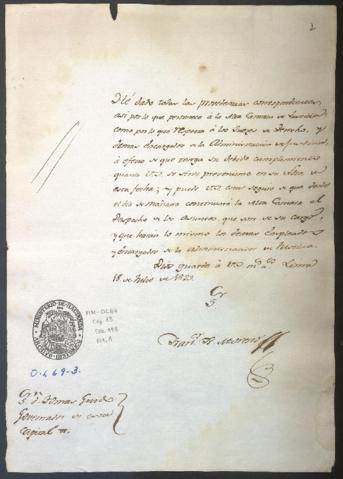 2
He dado todas las providencias correspondientes,
asi por lo que pertenece á la Alta Camara de Justicia
como por lo que respecta á los Juezes de Derecho, y
demas encargados de la Administracion de Justicia,
á efecto de que tenga su debido cumplimiento
quanto V.S. se sirve prevenirme en su Nota de
esta fecha; y puede V.S. estar seguro de que desde
el dia de mañana continuará la Alta Camara el
Despacho de los asuntos que son de su cargo,
y que harán lo mismo los demas Empleados
y encargados de la administracion de Justicia.
Dios guarde á V.S. m.s a.s Lima
18 de Julio de 182
Fran.co D. Moreno
MINISTERIO DE HACIENDA
O.L. 69-3.
S.r D. Tomas Guido
Governador de esta
Capital